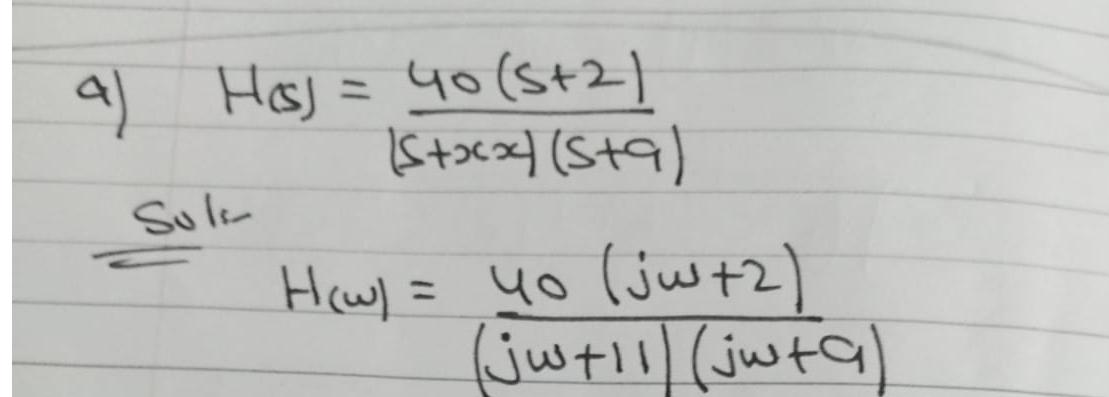 a) H(s) = 40(s+2)
(s+xx)(s+9)
Soln
H(w) = 40 (jw+2)
(jw+11)(jw+9)